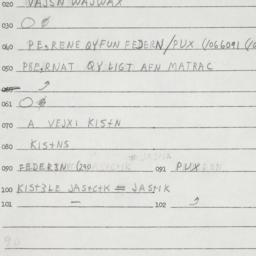 020 VAJSN WAJWAX
030
040 PE,RENE QYFUN FEDERN/PUX (/066091 (/0
050 PBP,RNAT QY LIGT AFN MATRAC
060
061
070 A VEJXI KISTN
080 KISTNS
090 FEDERIN (290 091 PUX
100 KISTBLE JASTCTK = JASTIK
101 — 102
90